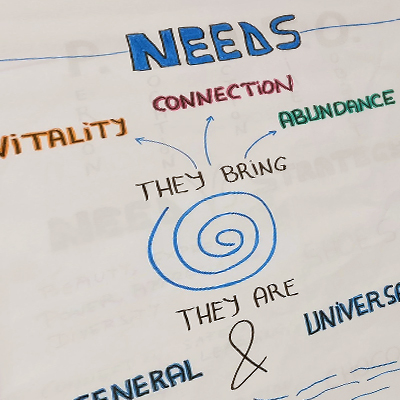 NEEDS
CONNECTION
ViTALiTY
ABUNDANCE
THEY BRiNG
THEY ARE
&
UNiVERSA
GENERAL